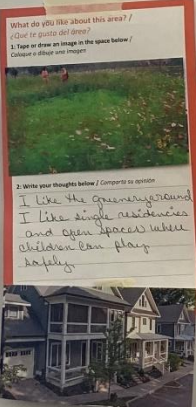 What do you like about this area? /
¿Qué te gusta del área?
1: Tape or draw an image in the space below /
Coloque o dibuje una imagen
2: Write your thoughts below / Comparta su opinión
I like the greenery around
I Like single residencies
and open spaces where
children can play
safely.